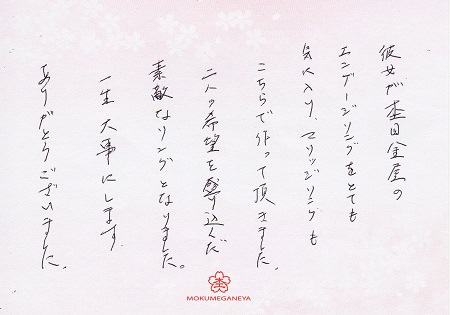 彼女が杢目金屋の
エンゲージリングをとても
気に入り、マリッジリングも
こちらで作って頂きました。
二人の希望を盛り込んだ
素敵なリングとなりました。
一生大事にします。
ありがとうございました。
MOKUMEGANEYA